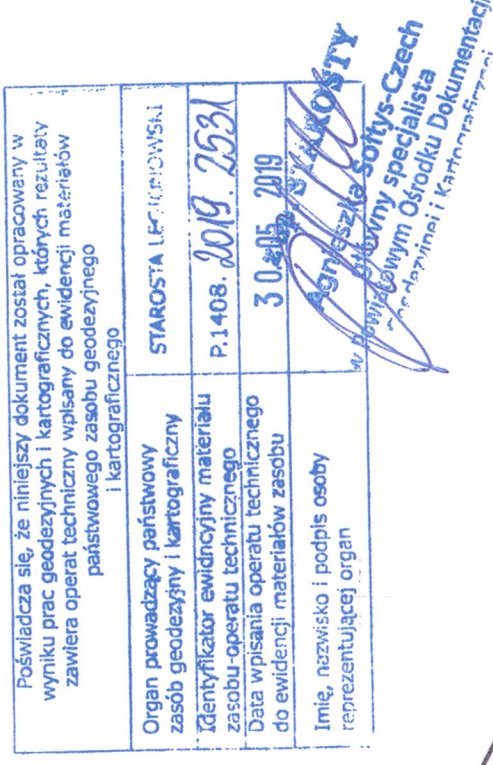 Poświadcza się, że niniejszy dokument został opracowany w
wyniku prac geodezyjnych i kartograficznych, których rezultaty
zawiera operat techniczny wpisany do ewidencji materiałów
państwowego zasobu geodezyjnego
i kartograficznego
Organ prowadzący państwowy
zasób geodezyjny i kartograficzny
STAROSTA LEGIONOWSKI
Identyfikator ewidncyjny materiału
zasobu-operatu technicznego
P.1408. 2019. 2531
Data wpisania operatu technicznego
do ewidencji materiałów zasobu
3 0. 05. 2019
Imię, nazwisko i podpis osoby
reprezentującej organ
STAROSTY
Agnieszka Sołtys-Czech
Główny specjalista
w Powiatowym Ośrodku Dokumentacji
Geodezyjnej i Kartograficznej